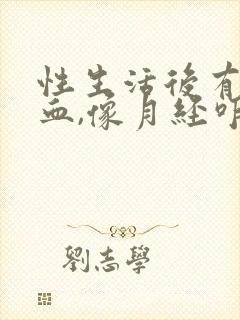 性生活後有
血,像月経
劉志學